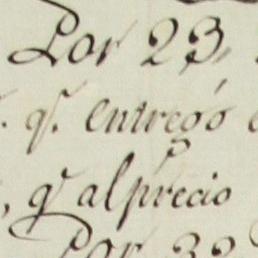 Por 23,
. q.ᵉ entregó
, q.ᵉ al precio
Por 32